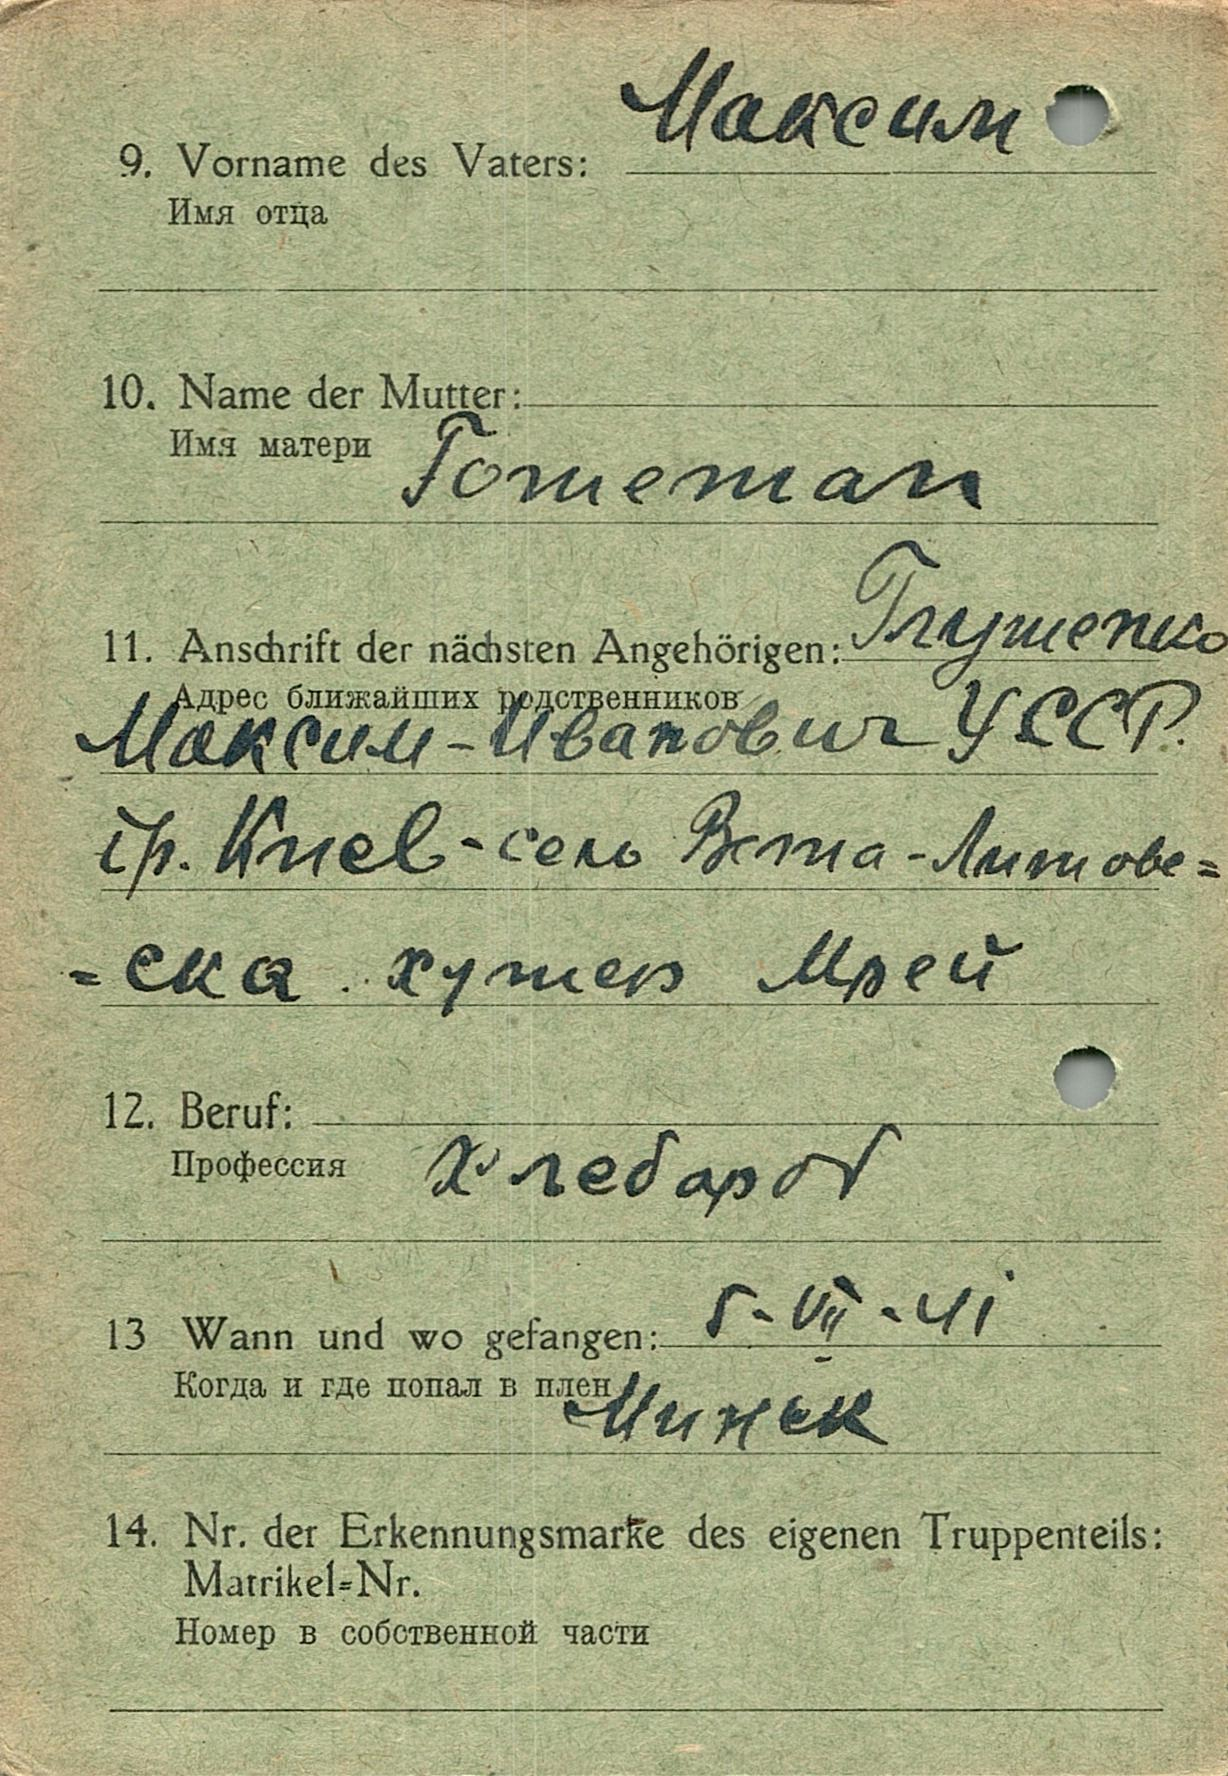 Максим
9. Vorname des Vaters:
Имя отца
10. Name der Mutter:
Имя матери Готетан
11. Anschrift der nächsten Angehörigen: Глушенко
Адрес ближайших родственников
Максим-Иванович УССР.
гр. Киев-село Вета-Литове=
=ска. хутер Мрей
12. Beruf:
Профессия Хлебароб
13 Wann und wo gefangen: 5-VII-41
Когда и где попал в плен Минск
14. Nr. der Erkennungsmarke des eigenen Truppenteils:
Matrikel=Nr.
Номер в собственной части